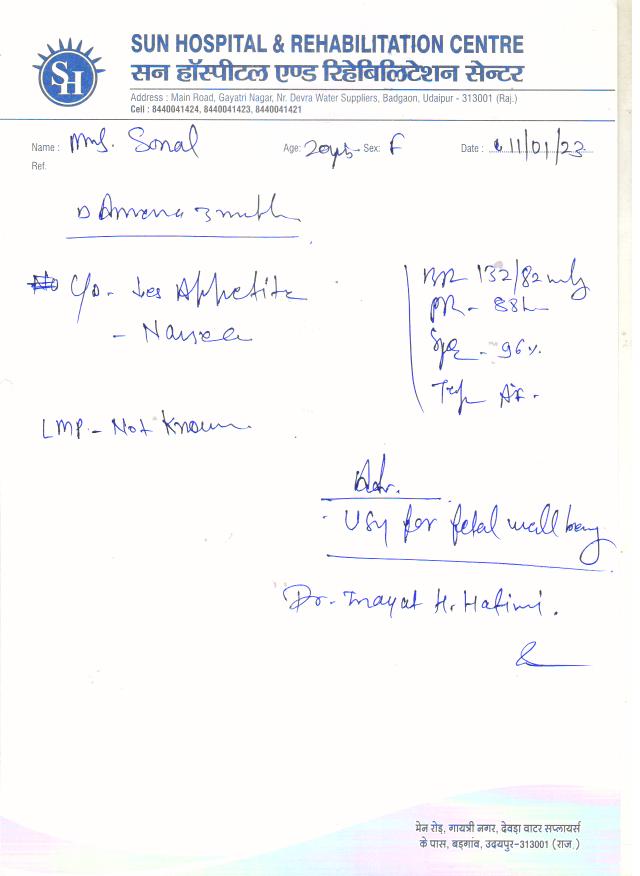 SH
SUN HOSPITAL & REHABILITATION CENTRE
सन हॉस्पीटल एण्ड रिहेबिलिटेशन सेन्टर
Address : Main Road, Gayatri Nagar, Nr. Devra Water Suppliers, Badgaon, Udaipur - 313001 (Raj.)
Cell : 8440041424, 8440041423, 8440041421
Name : Mrs. Sonal Age: 20yrs Sex: F Date : 11/01/23
Ref.
3 month
C/o - Les Appetite
- Nausea
BP 132/82
PR - 88
SpO2 - 96%
Temp
LMP - Not Known
Adv.
USG for fetal well being
Dr. Inayat H. Hafimi.
मेन रोड़, गायत्री नगर, देवड़ा वाटर सप्लायर्स
के पास, बड़गांव, उदयपुर-313001 (राज.)